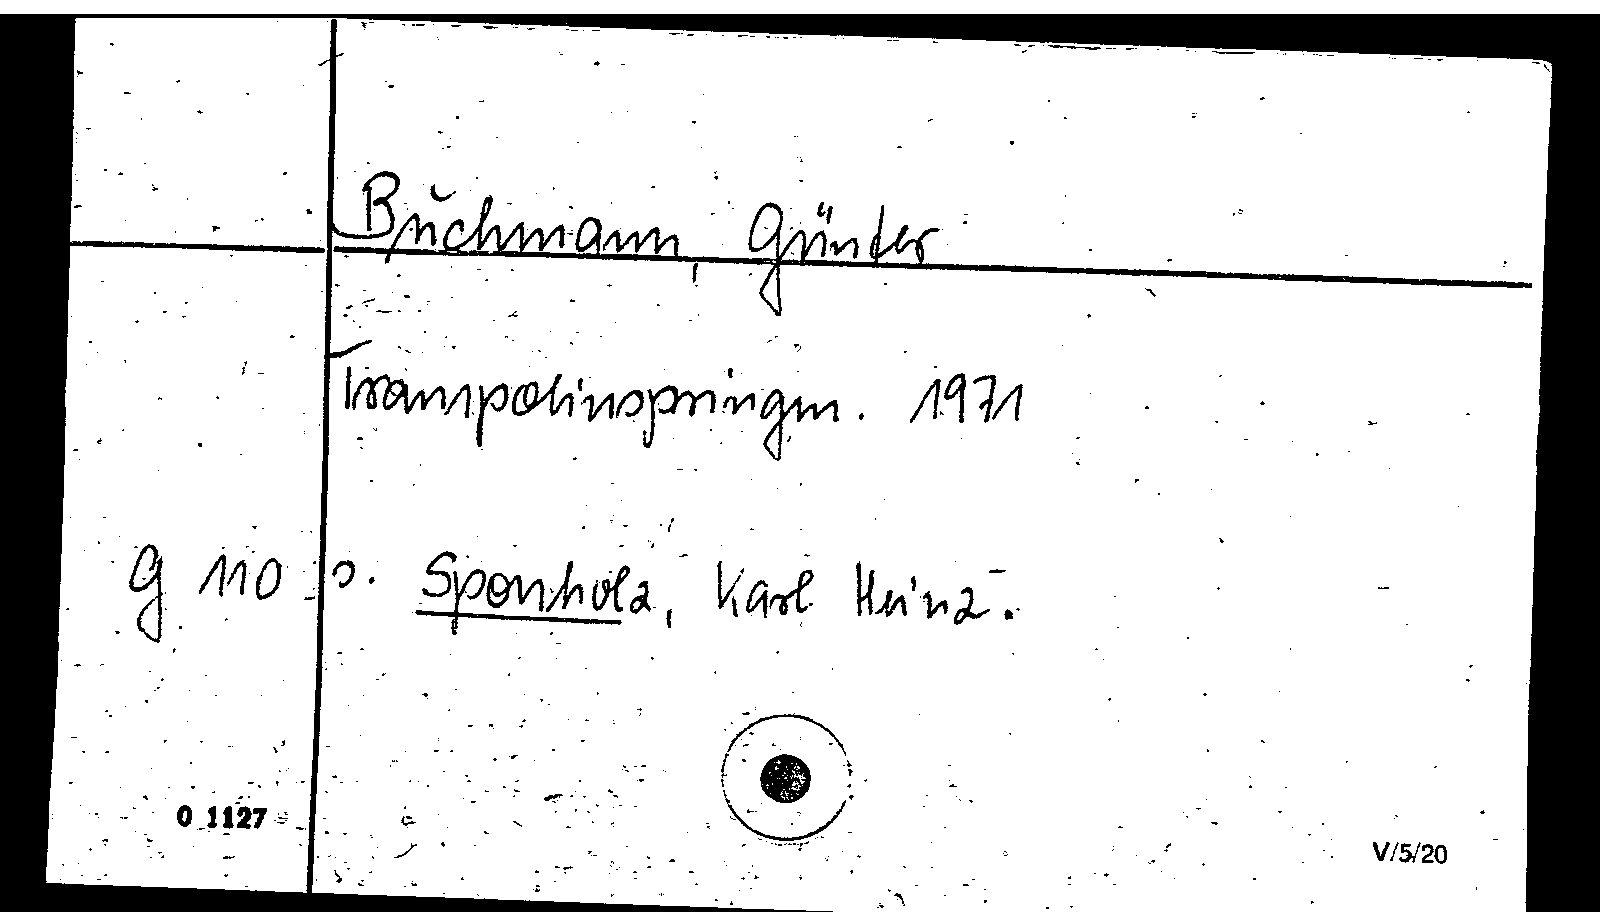 Buchmann, Günter
Trampolinspringen. 1971
G 110 s. Sponholz, Karl Heinz.
0 1127
V/5/20